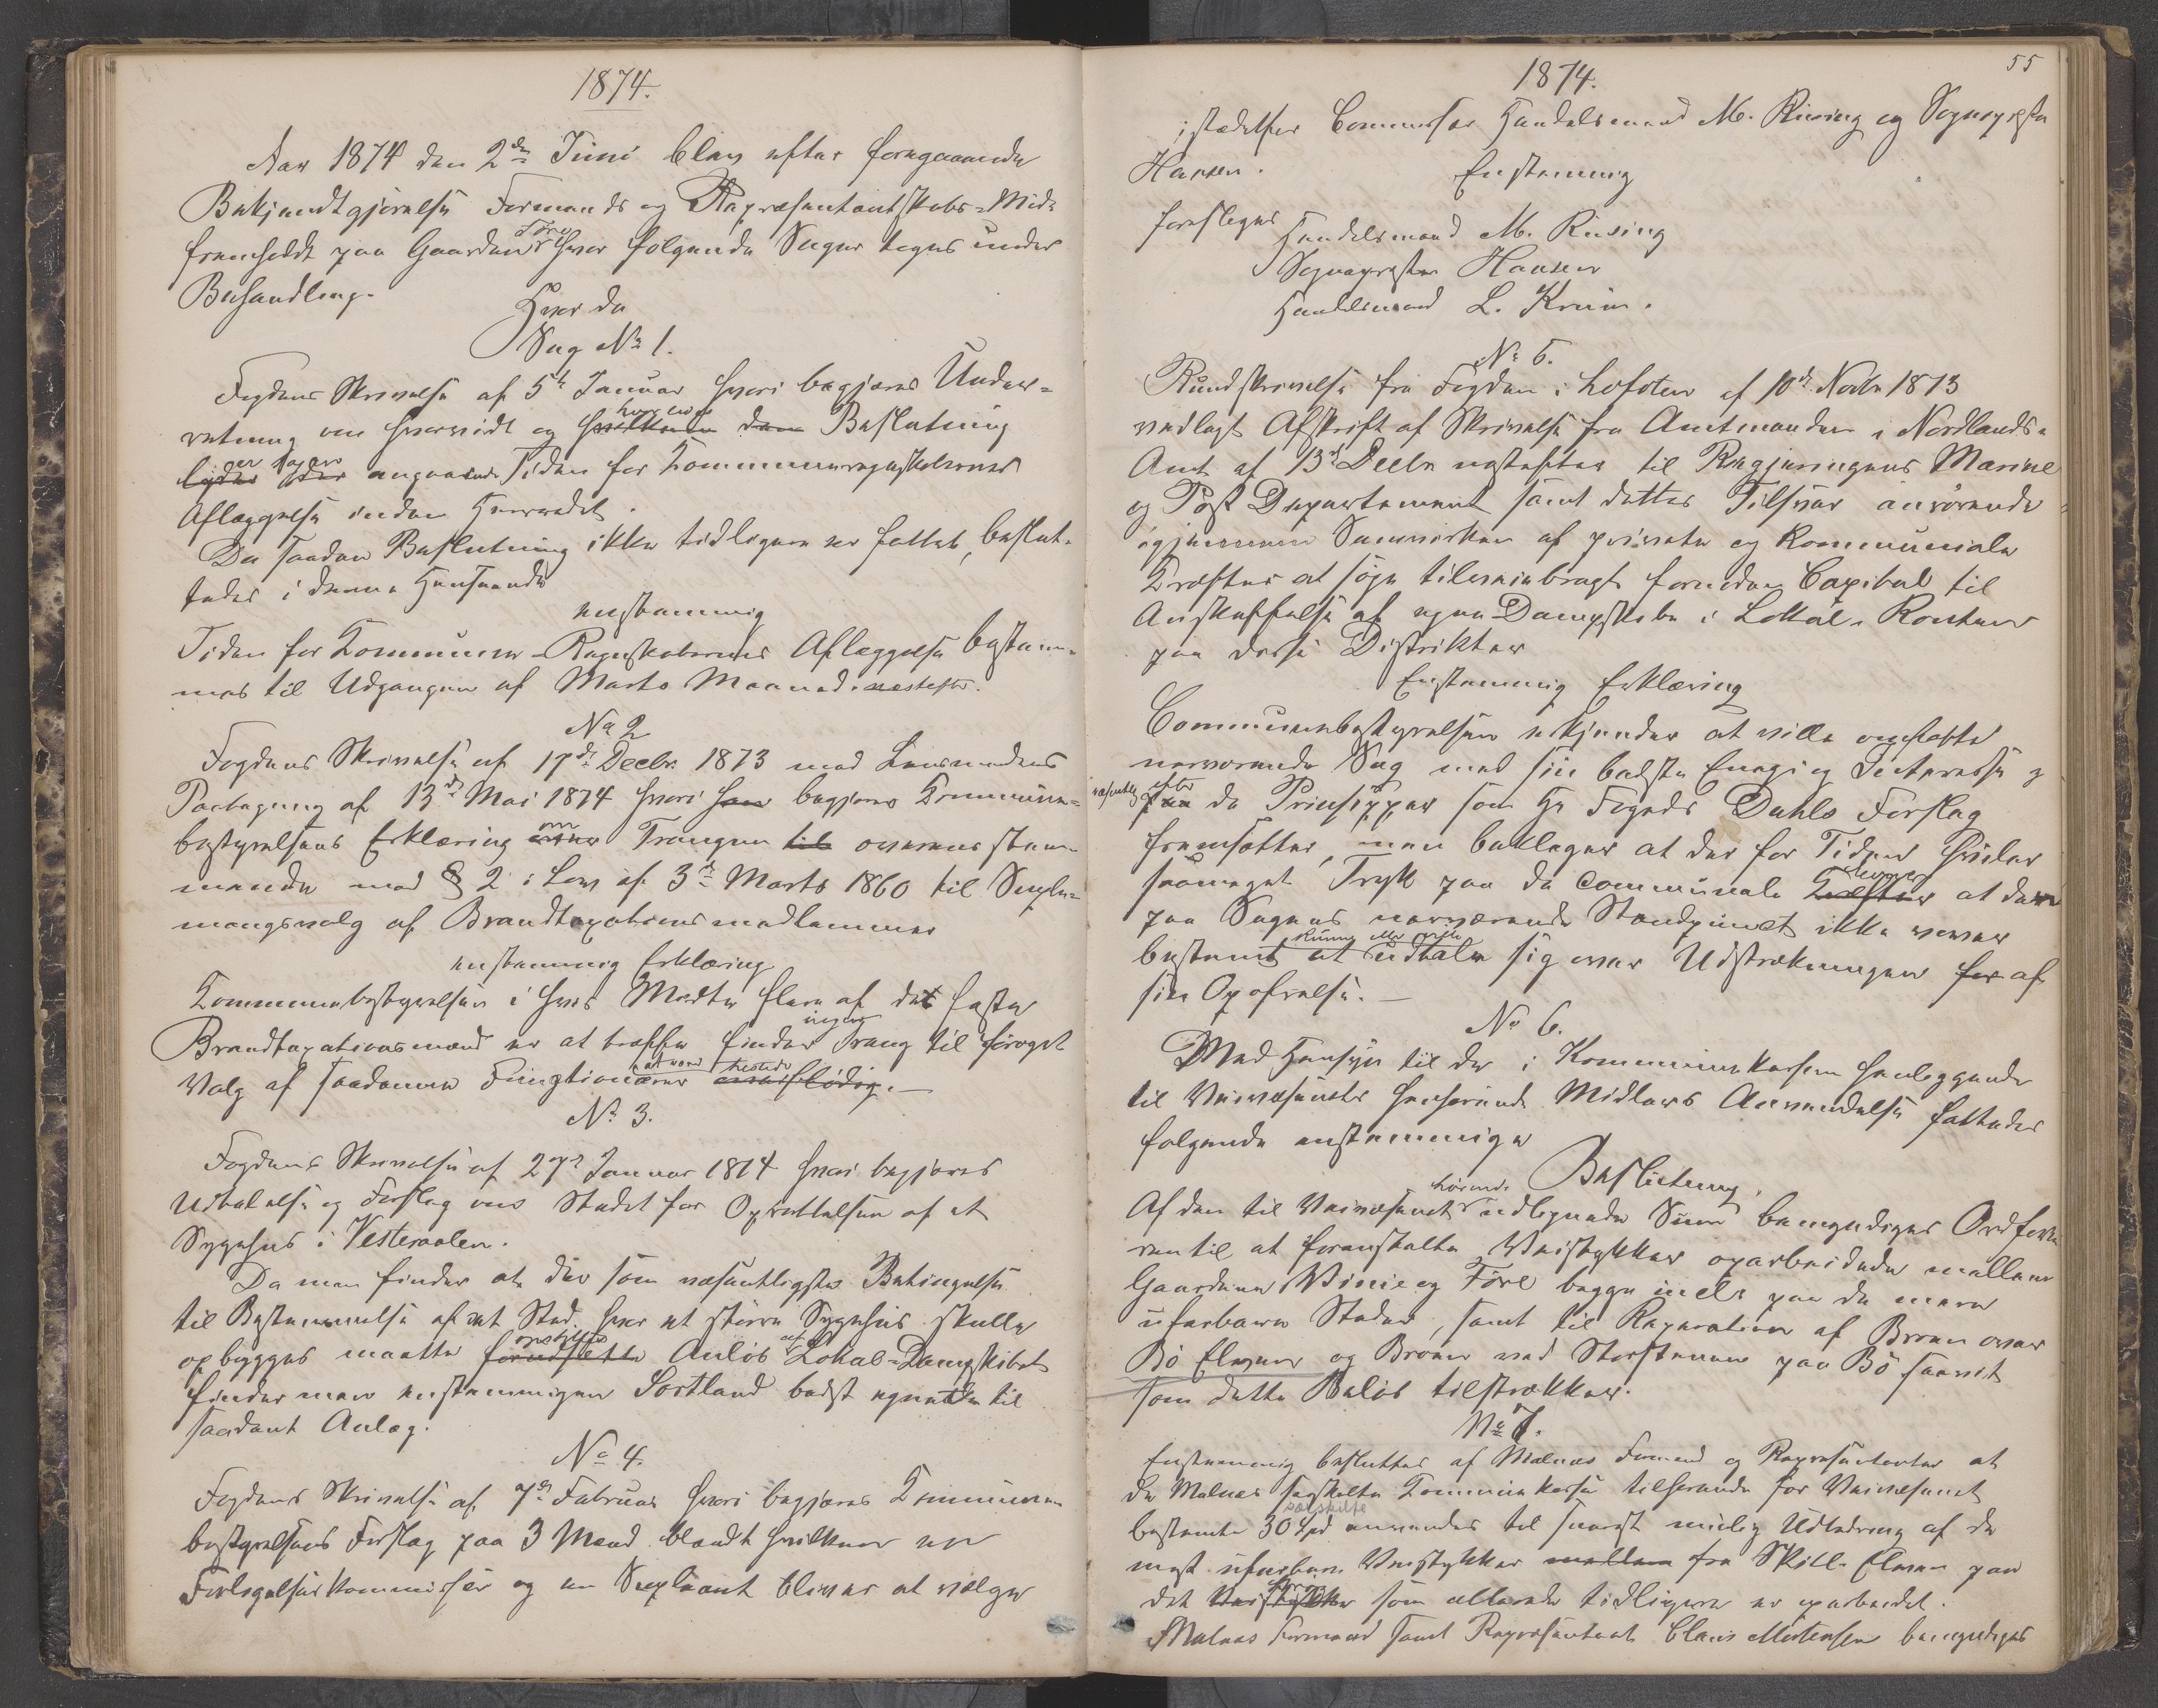 1874.
Aar 1874 den 2den Juni blev efter foregaaende
Bekjendtgjørelse Formands og Repræsentantskabs-Møde
fremholdt paa Gaarden Føre hvor følgende Sager toges under
Behandling.
Hvor da
Sag No 1.
Fogdens Skrivelse af 5te Januar hvori begjæres Under-
retning om hvorvidt og hvilken den Beslutning
er tagen angaaende Tiden for Kommuneregnskabernes
Aflæggelse inden Herredet.
Da saadan Beslutning ikke tidligere er fattet, beslut-
tedes i denne Henseende
enstemmig
Tiden for Kommune-Regnskabernes Aflæggelse bestem-
mes til Udgangen af Marts Maaned næstefter.
No 2
Fogdens Skrivelse af 17de Decbr. 1873 med Lensmandens
Paategning af 13de Mai 1874 hvori han begjæres Kommune-
bestyrelsens Erklæring om Trangen til overensstem-
mende med § 2 i Lov af 3de Marts 1860 til Supple-
mangsvalg af Brandtaxationsmedlemmer
enstemmig Erklæring
Kommunebestyrelsen i hvis Midte flere af de faste
Brandtaxationsmænd er at træffe finder ingen Trang til foröget
Valg af saadanne Funktionærer at være tilstede overflödig.—
No 3.
Fogdens Skrivelse af 27de Januar 1874 hvori begjæres
Udtalelse og Forslag om Stedet for Oprettelsen af et
Sygehus i Vesteraalen.
Da man finder at der som væsentligste Betingelse
til Bestemmelse af et Sted hvor et större Sygehus skulle
opbygges maatte opstilles forudsætte Anlöb af Lokal-Dampskibet
finder man enstemmigen Sortland bedst egnede til
saadant Anlæg.
No 4.
Fogdens Skrivelse af 7de Februar hvori begjæres Kommune-
bestyrelsens Forslag paa 3 Mænd blandt hvilken en
Forligelseskommissær og en Suppleant bliver at vælge
55
1874.
istedetfor Commissær Handelsmand M. Rising og Sognepræsten
Hansen.
Enstemmig
foreslages Handelsmand M. Rising
Sognepresten Hansen
Handelsmand L. Krüm.
No 5.
Rundskrivelse fra Fogden i Lofoten af 10de Novbr 1873
vedlagt Afskrift af Skrivelse fra Amtmanden i Nordlands-
Amt af 13de Decbr næstefter til Regjeringens Marine
og Post Departement samt dettes Tilsvar anrörende
igjennem Samvirken af private og kommunale
Kræfter at söge tilveiebragt fornöden Capital til
Anskaffelse af egne Dampskibe i Lokal-Routen
paa disse Distrikter
Enstemmig Erklæring
Communebestyrelsen erkjender at ville omfatte
nærværende Sag med sin bedste Energi og Interesse
væsentlig efter paa de Prinsipper som Hr Foged Dahls Forslag
fremsætter, men beklager at der for Tiden hviler
saameget Tryk paa de communale Kræfter at den
paa Sagens nærværende Standpunct ikke vover
bestemt at kunne eller ville udtale sig over Udstrækningen for af
sin Opofrelse.—
No 6.
Med Hensyn til de i Kommunekassen henliggende
til Veivæsenets henhörende Midlers Anvendelse fattedes
følgende enstemmige
Beslutning.
Af den til Veivæsenet hörende udlignede Sum bemyndiges Ordföre-
ren til at foranstalte Veistykker oparbeidede mellem
Gaardene Vinie og Före begge incl. paa de mere
ufarbare Steder, samt til Reparation af Broen over
Bö Elven og Broen ved Storstenen paa Bö saavidt
som dette Belöb tilstrækker.
No 7.
Enstemmig besluttes af Malnæs Formænd og Repræsentanter at
de Malnæs særskilte Kommunekasse tilhörende for Veivæsenet
særskilte
bestemte 30 Spd anvendes til snarest mulig Udbedring af de
mest ufarbare Veistykker mellem fra Skill-Elven paa
det som allerede tidligere er oparbeidet.
Malnæs Formænd samt Repræsentant Claus Mortensen bemyndiges